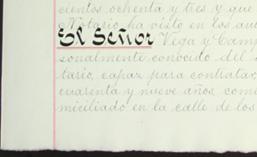 cientos ochenta y tres y que
Notario ha visto en los au
El Señor Vega y Camp
sonalmente conocido del
tario, capaz para contratar,
cuarenta y nueve años, com
miciliado en la calle de los